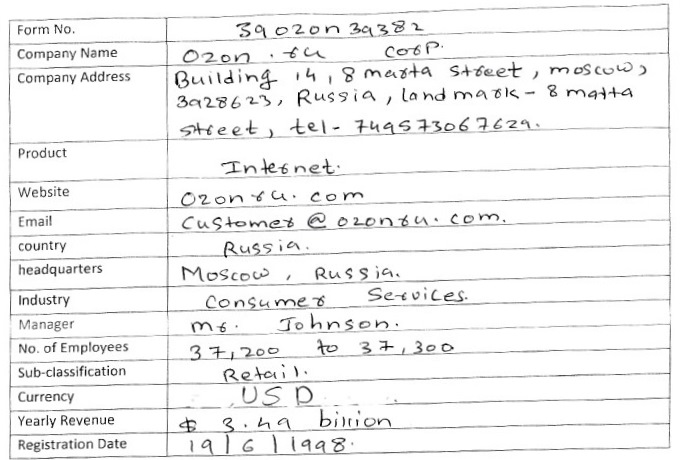 Form No. 39ozon39382
Company Name Ozon.ru corp.
Company Address Building 14, 8 marta street, moscow,
3928623, Russia, landmark - 8 matta
street, tel- 749573067629.
Product Internet.
Website ozonru.com
Email Customer@ozonru.com.
country Russia.
headquarters Moscow, Russia.
Industry Consumer Services.
Manager mr. Johnson.
No. of Employees 37,200 to 37,300
Sub-classification Retail.
Currency USD
Yearly Revenue $ 3.49 billion
Registration Date 19/6/1998.